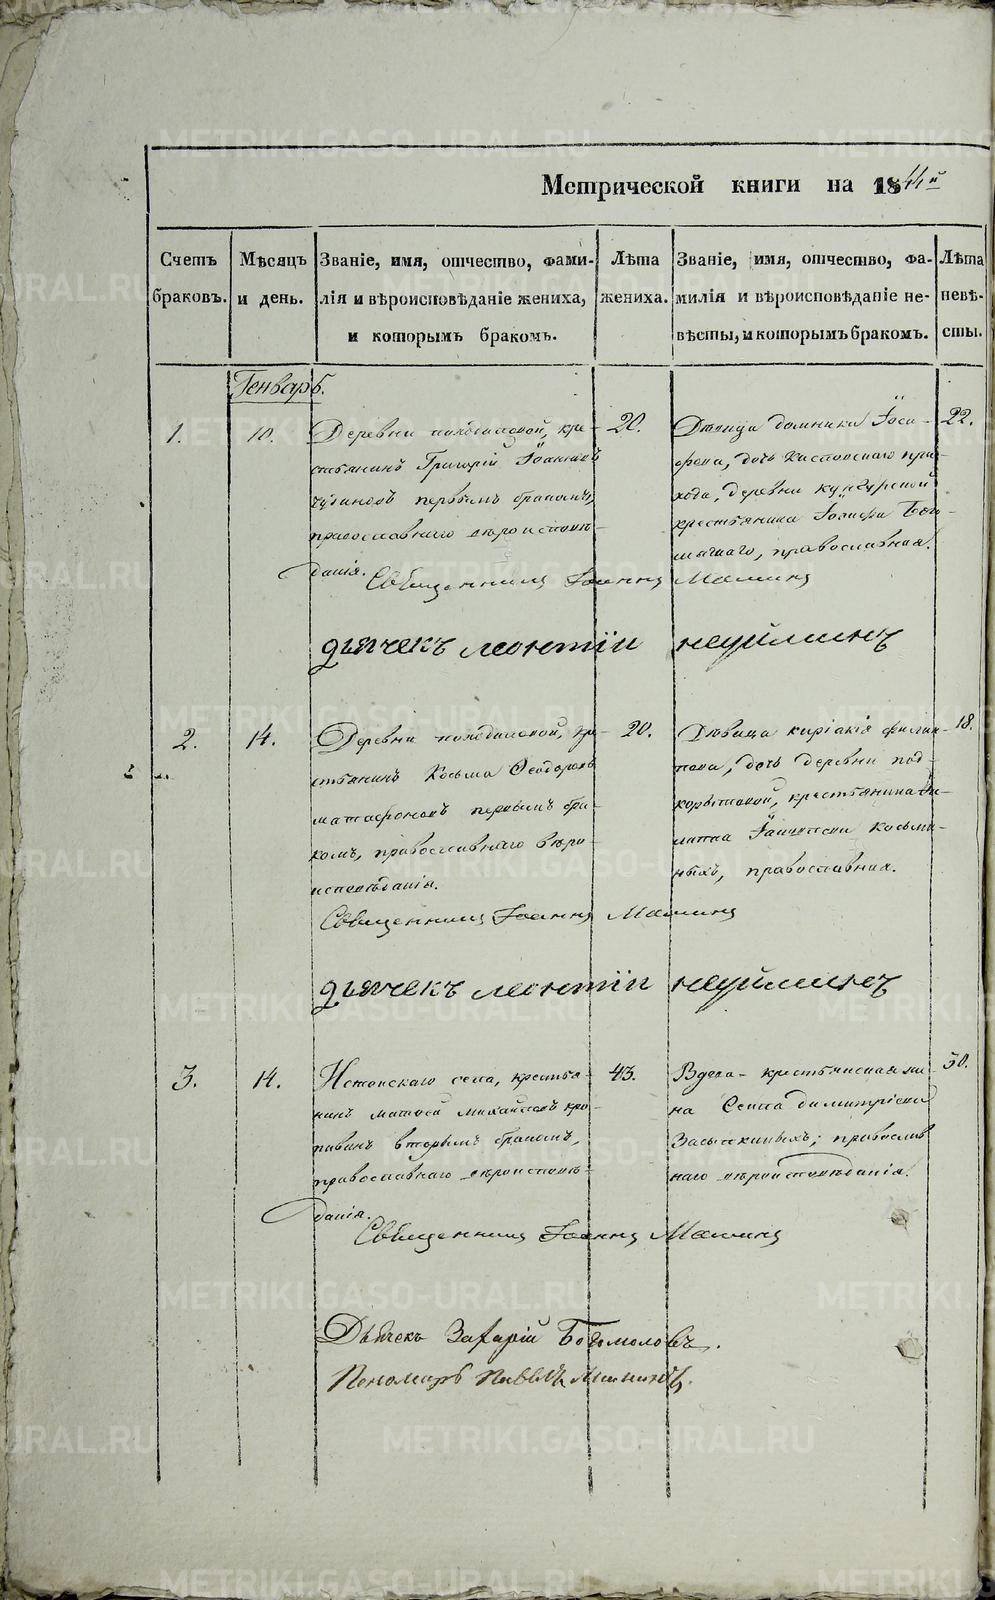 Метрической книги на 1844й
Счетъ браковъ.
Мѣсяцъ и день.
Званіе, имя, отчество, фами-
лія и вѣроисповѣданіе жениха,
и которымъ бракомъ.
Лѣта жениха.
Званіе, имя, отчество, фа-
милія и вѣроисповѣданіе не-
вѣсты, и которымъ бракомъ.
Лѣта невѣ-
сты.
Генварь.
1.
10.
Деревни кре-
стьянинъ Григорій Іоанновъ
первымъ бракомъ,
православнаго вѣроисповѣ-
данія.
20.
Дѣвица домника Іоси-
фова, дочь при-
хода, деревни кунгурской
крестьянина Іосифа
православная.
22.
Священникъ Іоаннъ Маминъ
дьячекъ леонтіи неуйминъ
2.
14.
Деревни кре-
стьянинъ Косьма Ѳеодоровъ
матафоновъ первымъ бра-
комъ, православнаго вѣро-
исповѣданія.
20.
Дѣвица киріакія филип-
пова, дочь деревни под-
корытовой, крестьянина Фи-
липпа косьми-
ныхъ, православная.
18.
Священникъ Іоаннъ Маминъ
дьячекъ леонтіи неуйминъ
3.
14.
села, крестья-
нинъ матѳей михайловъ кро-
пивинъ вторымъ бракомъ,
православнаго вѣроисповѣ-
данія.
43.
Вдова - крестьянская же-
на димитріева
православ
наго вѣроисповѣданія.
50.
Священникъ Іоаннъ Маминъ
Дьячекъ Захарій Богомоловъ.
Пономарь Павелъ
METRIKI.GASO-URAL.RU